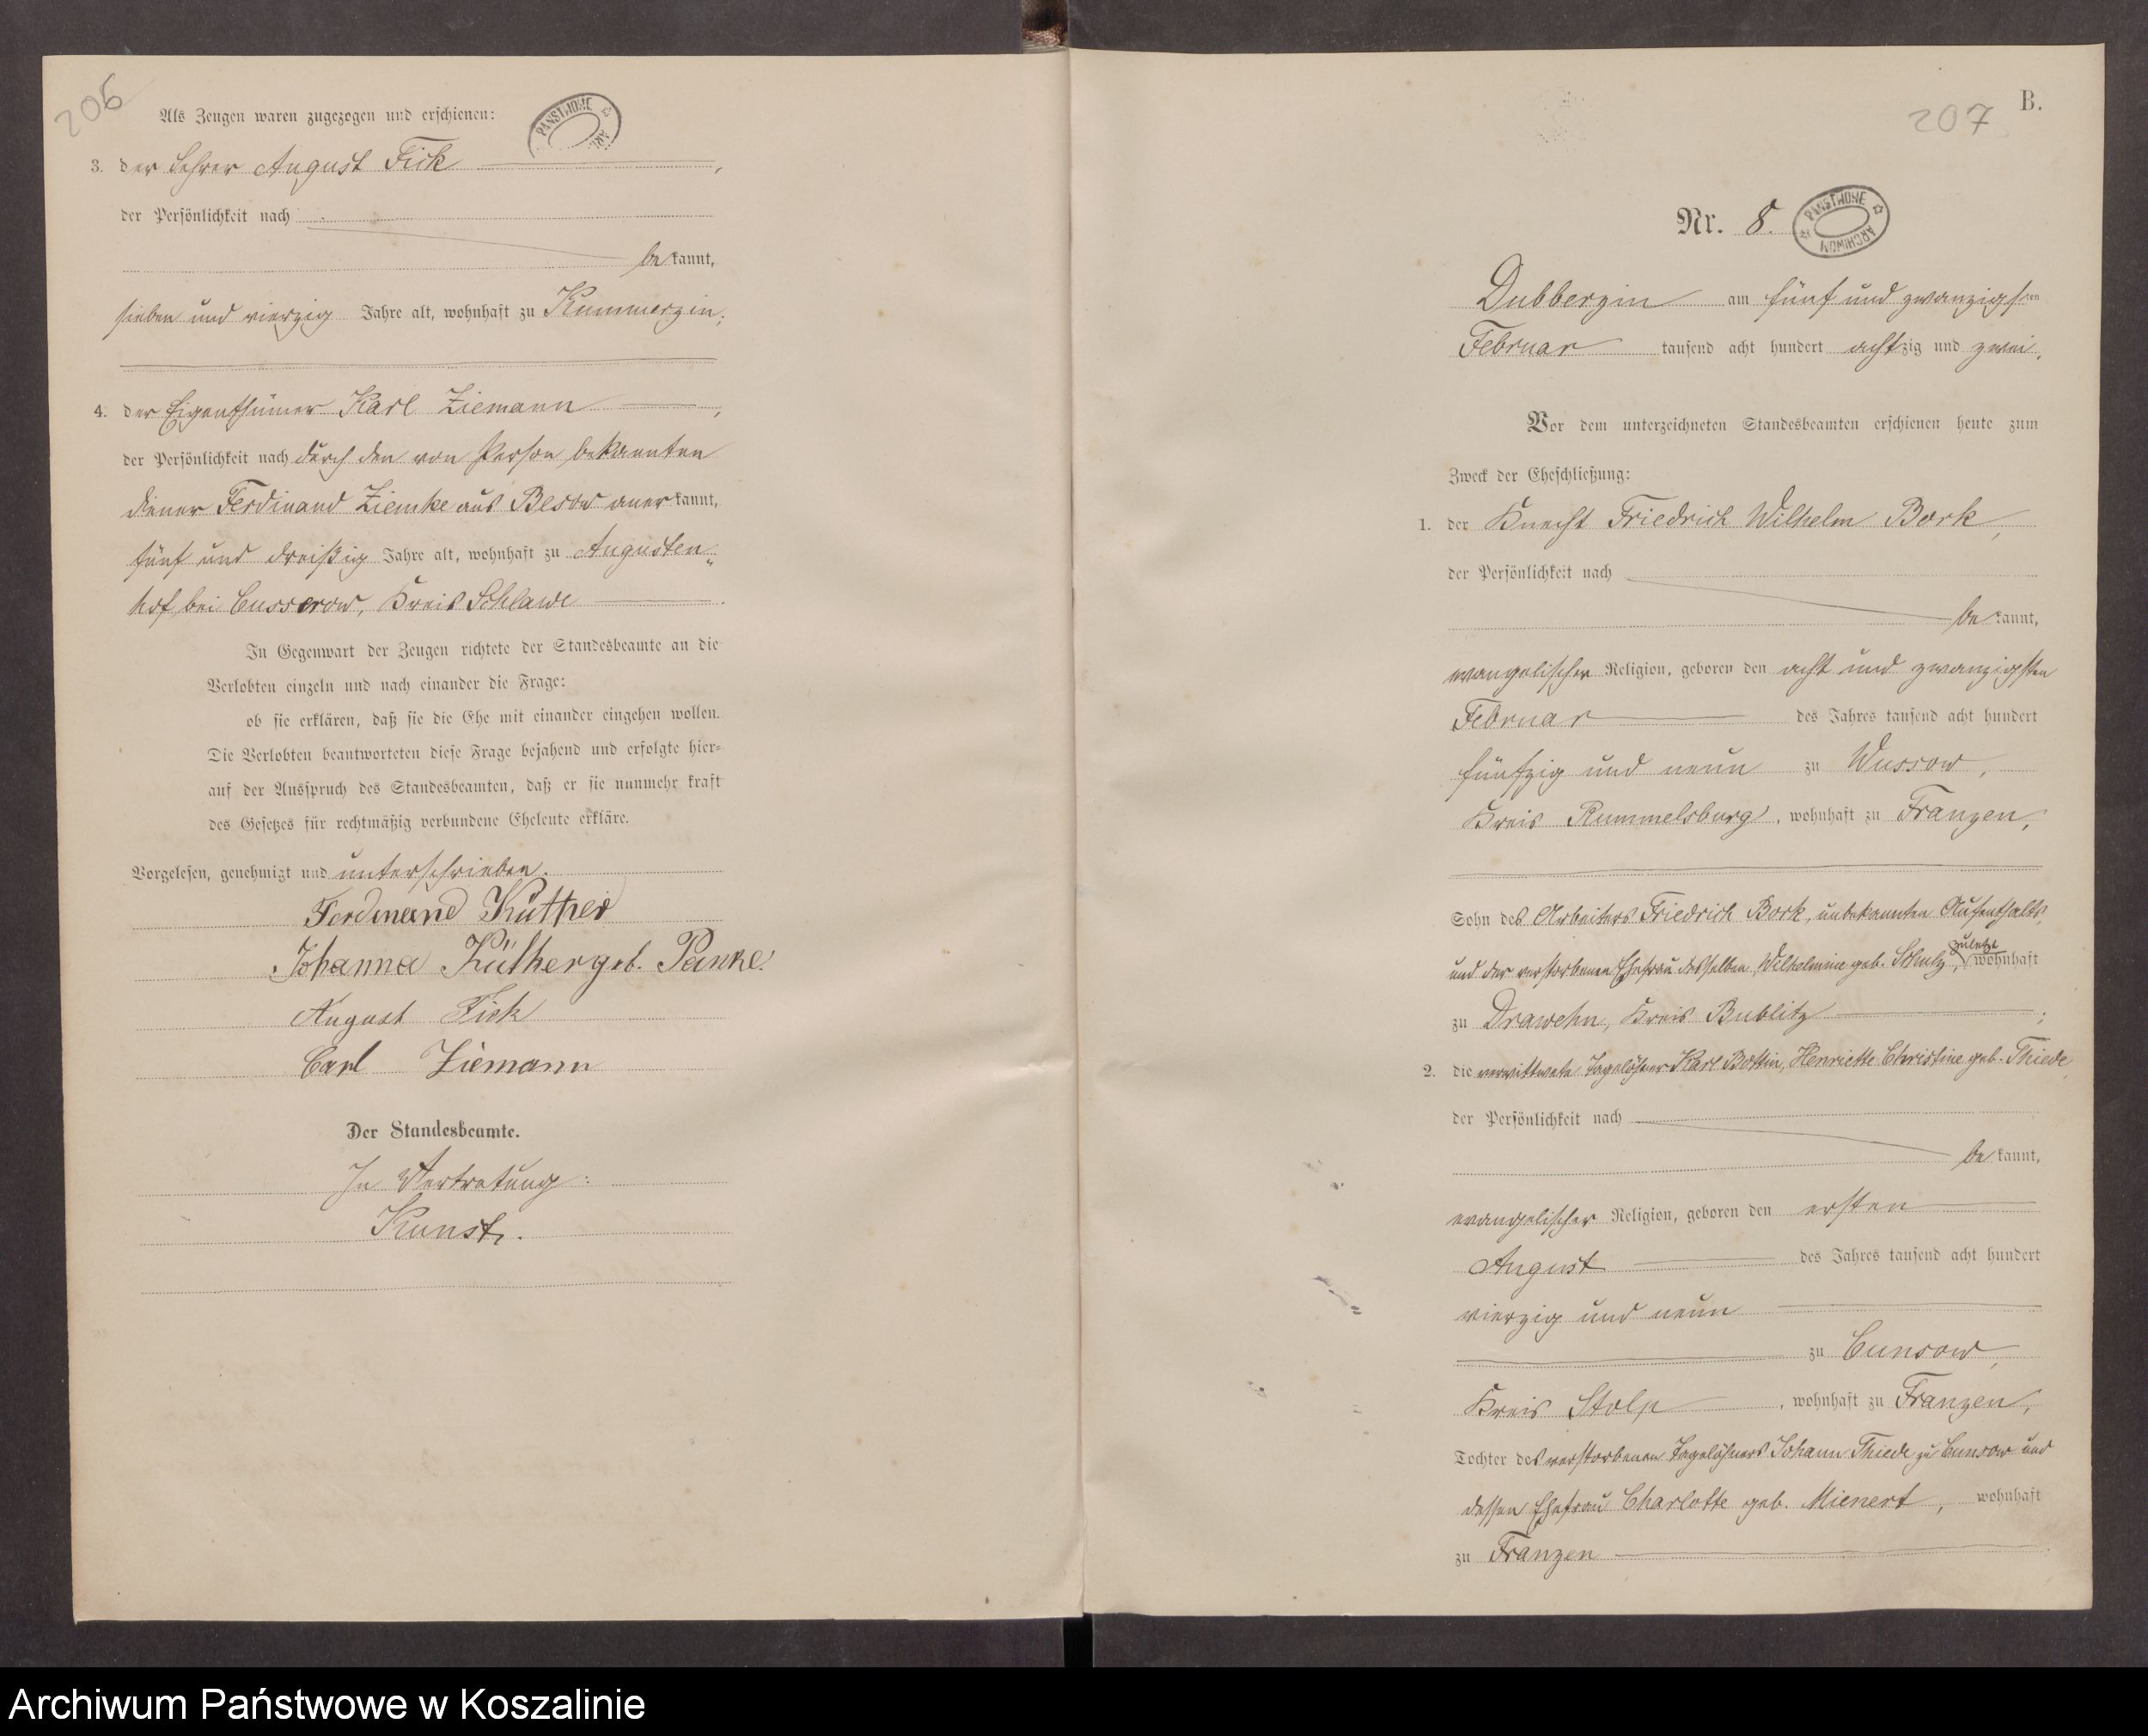 206
Als Zeugen waren zugezogen und erschienen:
PAŃSTWOWE
3. der Lehrer August Fick,
der Persönlichkeit nach
bekannt,
sieben und vierzig Jahre alt, wohnhaft zu Kummerzin;
4. der Eigenthümer Karl Ziemann,
der Persönlichkeit nach durch den von Person bekannten
Diener Ferdinand Ziemke aus Besow anerkannt,
fünf und dreißig Jahre alt, wohnhaft zu Augusten-
hof bei Cusserow, Kreis Schlawe.
In Gegenwart der Zeugen richtete der Standesbeamte an die
Verlobten einzeln und nach einander die Frage:
ob sie erklären, daß sie die Ehe mit einander eingehen wollen.
Die Verlobten beantworteten diese Frage bejahend und erfolgte hier-
auf der Ausspruch des Standesbeamten, daß er sie nunmehr kraft
des Gesetzes für rechtmäßig verbundene Eheleute erkläre.
Vorgelesen, genehmigt und unterschrieben.
Ferdinand Küther
Johanna Küther geb. Panke.
August Fick
Carl Ziemann
Der Standesbeamte.
In Vertretung:
Kunst.
B.
207
Nr. 8.
PAŃSTWOWE ARCHIWUM
Dubberzin am fünf und zwanzigsten
Februar tausend acht hundert achtzig und zwei.
Vor dem unterzeichneten Standesbeamten erschienen heute zum
Zweck der Eheschließung:
1. der Knecht Friedrich Wilhelm Bork,
der Persönlichkeit nach
bekannt,
evangelischer Religion, geboren den acht und zwanzigsten
Februar des Jahres tausend acht hundert
fünfzig und neun zu Wussow,
Kreis Rummelsburg, wohnhaft zu Franzen,
Sohn des Arbeiters Friedrich Bork, unbekannten Aufenthalts,
und der verstorbenen Ehefrau desselben Wilhelmine geb. Schulz, zuletzt wohnhaft
zu Drawehn, Kreis Bublitz;
2. die verwittwete Tagelöhner Karl Bottin, Henriette Christine geb. Thiede
der Persönlichkeit nach
bekannt,
evangelischer Religion, geboren den ersten
August des Jahres tausend acht hundert
vierzig und neun
zu Cunsow,
Kreis Stolp, wohnhaft zu Franzen,
Tochter des verstorbenen Tagelöhners Johann Thiede zu Cunsow und
dessen Ehefrau Charlotte geb. Mienert, wohnhaft
zu Franzen
Archiwum Państwowe w Koszalinie